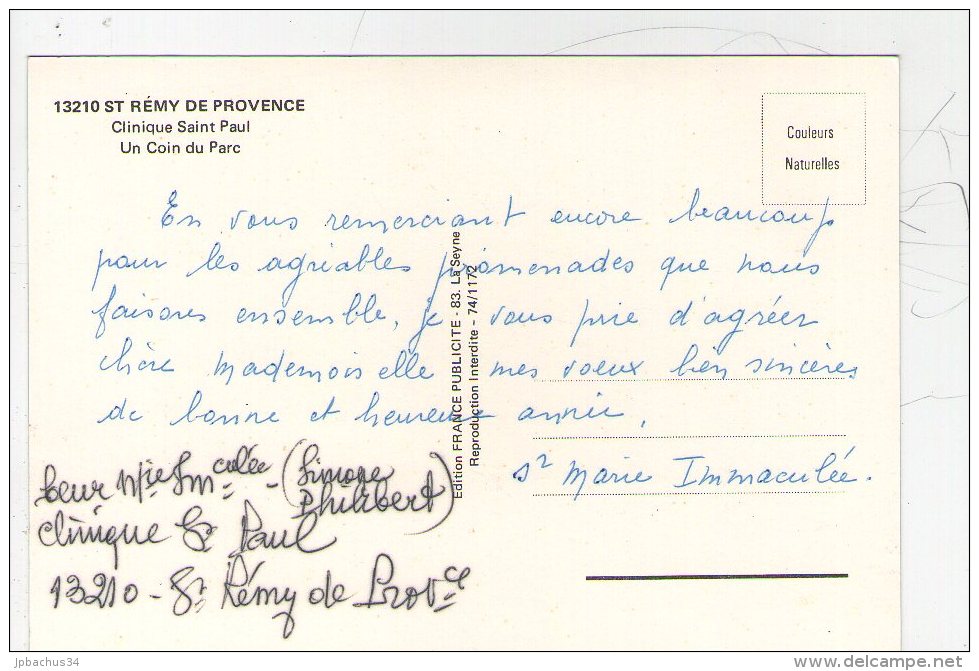 13210 ST RÉMY DE PROVENCE
Clinique Saint Paul
Un Coin du Parc
Couleurs
Naturelles
En vous remerciant encore beaucoup
pour les agréables promenades que nous
faisons ensemble, je vous prie d'agréer
chère Mademoiselle mes voeux bien sincères
de bonne et heureuse année.
Sr Marie Immaculée.
Edition FRANCE PUBLICITE - 83. La Seyne
Reproduction Interdite - 74/1172
Soeur Mie Immculée - (Simone
Philibert)
Clinique St Paul
13210 - St Rémy de Provce
jpbachus34
www.delcampe.net